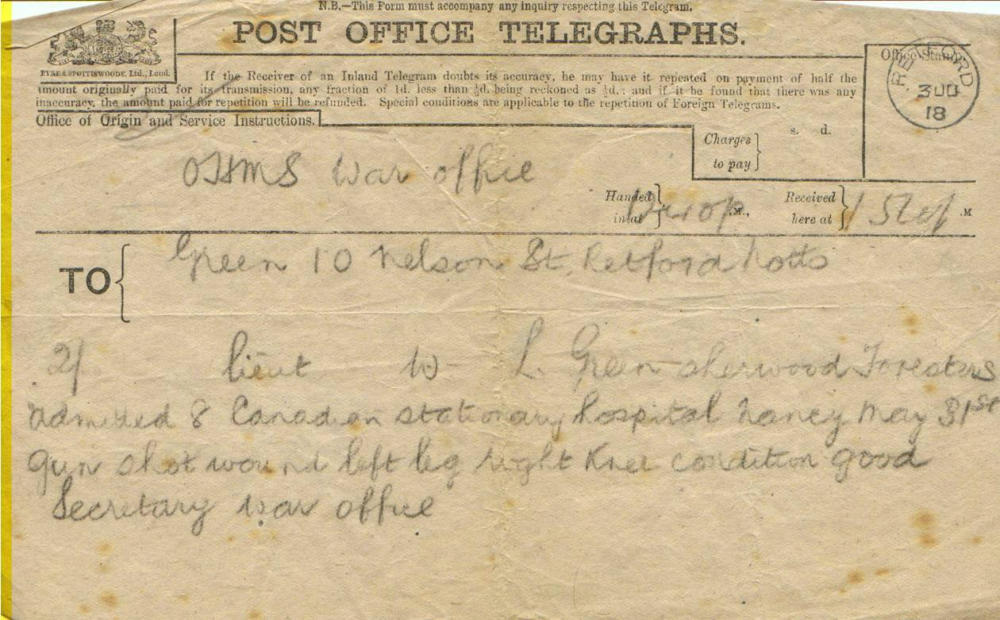 N.B.—This Form must accompany any inquiry respecting this Telegram.
POST OFFICE TELEGRAPHS.
EYRE & SPOTTISWOODE, Ltd., Lond.
If the Receiver of an Inland Telegram doubts its accuracy, he may have it repeated on payment of half the
amount originally paid for its transmission, any fraction of 1d. less than ½d. being reckoned as ½d.; and if it be found that there was any
inaccuracy, the amount paid for repetition will be refunded. Special conditions are applicable to the repetition of Foreign Telegrams.
Office of Origin and Service Instructions.
Office Stamp.
RETFORD
3 JU
18
Charges to pay
s. d.
OHMS War office
Handed in at
M.,
Received here at
.M
TO
Green 10 Nelson St. Retford Notts
2/ lieut W L. Green Sherwood Foresters
admitted 8 Canadian stationary hospital Nancy May 31st
gun shot wound left leg right Knee condition good
Secretary war office